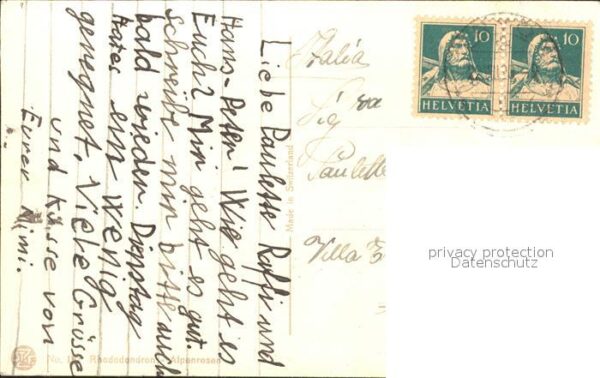 Liebe Paulette Raffi und
Hans-Peter! Wie geht es
Euch? Mir geht es gut.
Schreibt mir bitte auch
bald wieder. Dienstag
hates ein wenig
geregnet, Viele Grüsse
und Küsse von
Eurer Mimi.
Made in Switzerland
Italia
Sig
Paulette
Villa
10 10
HELVETIA HELVETIA
privacy protection
Datenschutz
No. Rhododendron Alpenrosen